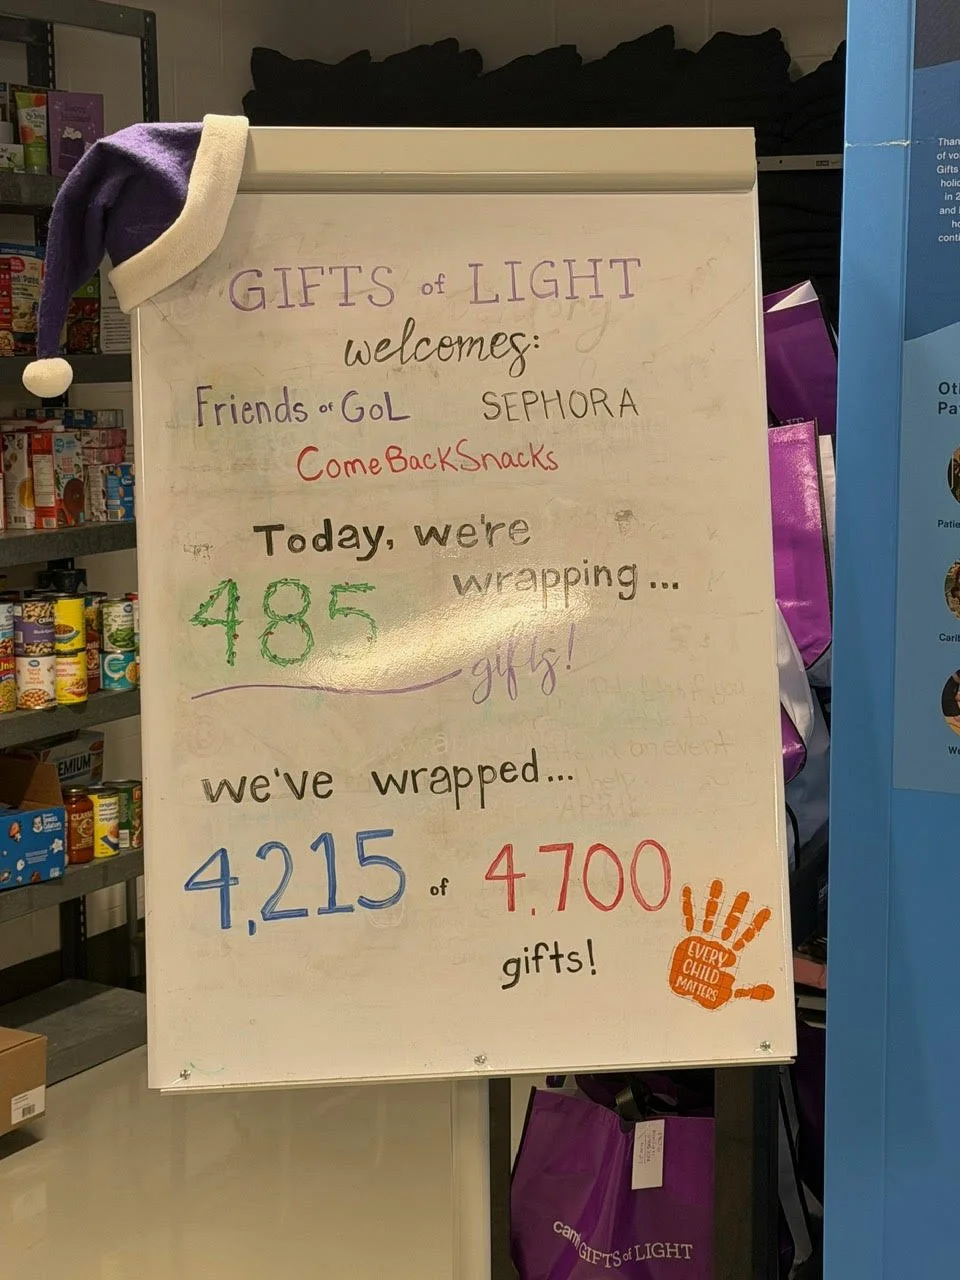 GIFTS of LIGHT
welcomes:
Friends of GOL
SEPHORA
ComeBackSnacks
Today, we're
wrapping...
485
gifts!
we've wrapped...
4,215 of 4.700
gifts!
EVERY
CHILD
MATTERS
camh GIFTS of LIGHT
PREMIUM
CLASSIC
Than
of vo
Gifts
holid
in 2
and
ho
conti
Oth
Pa
Patie
Carib
We